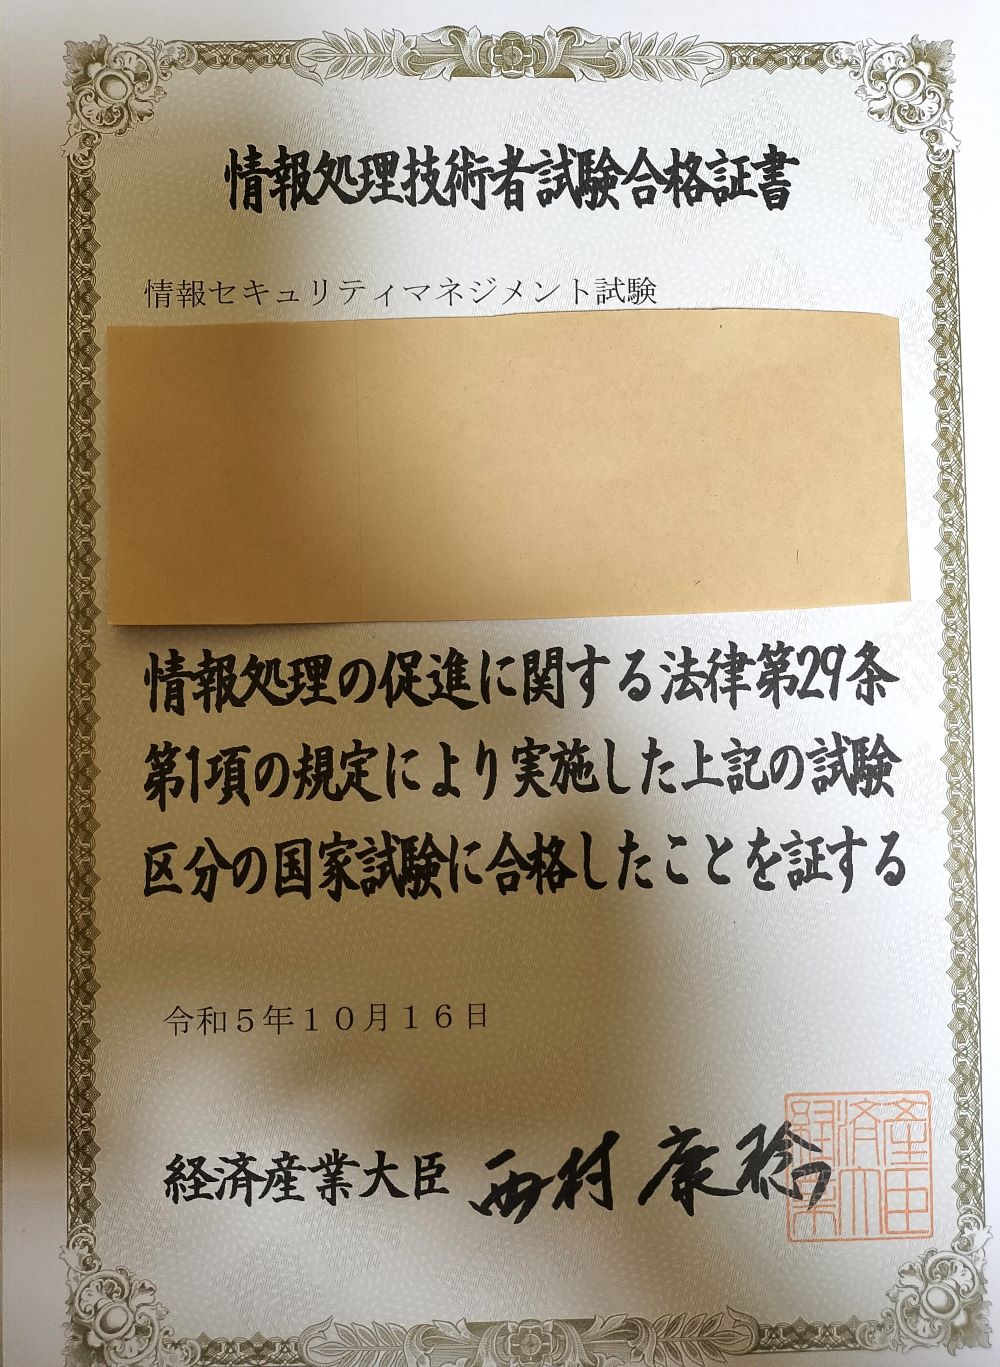 情報処理技術者試験合格証書
情報セキュリティマネジメント試験
情報処理の促進に関する法律第29条
第1項の規定により実施した上記の試験
区分の国家試験に合格したことを証する
令和５年１０月１６日
経済産業大臣 西村康稔
経済産業大臣